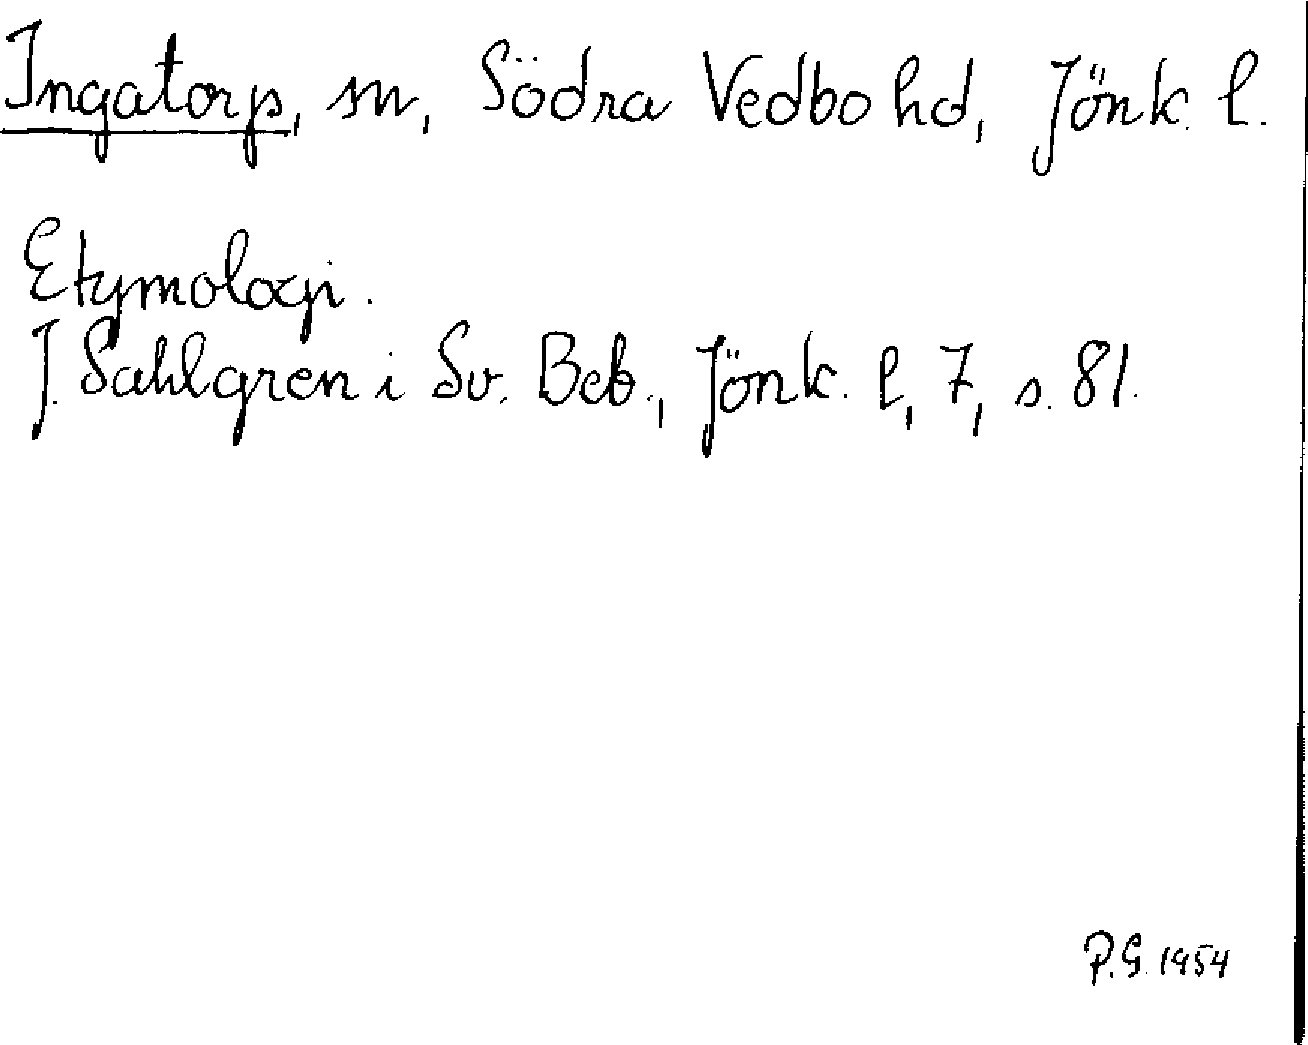 Ingatorp, sn, Södra Vedbo hd, Jönk. l.
Etymologi.
J. Sahlgren i Sv. Beb., Jönk. l, 7, s. 81.
P.G. 1954